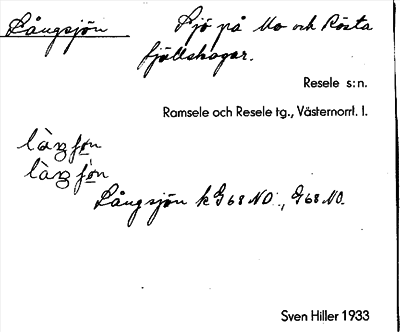 Långsjön Sjö på Mo och Rösta
fjällskogar.
Resele s:n.
Ramsele och Resele tg., Västernorrl. l.
Långsjön k G68 NO., G68 NO.
Sven Hiller 1933